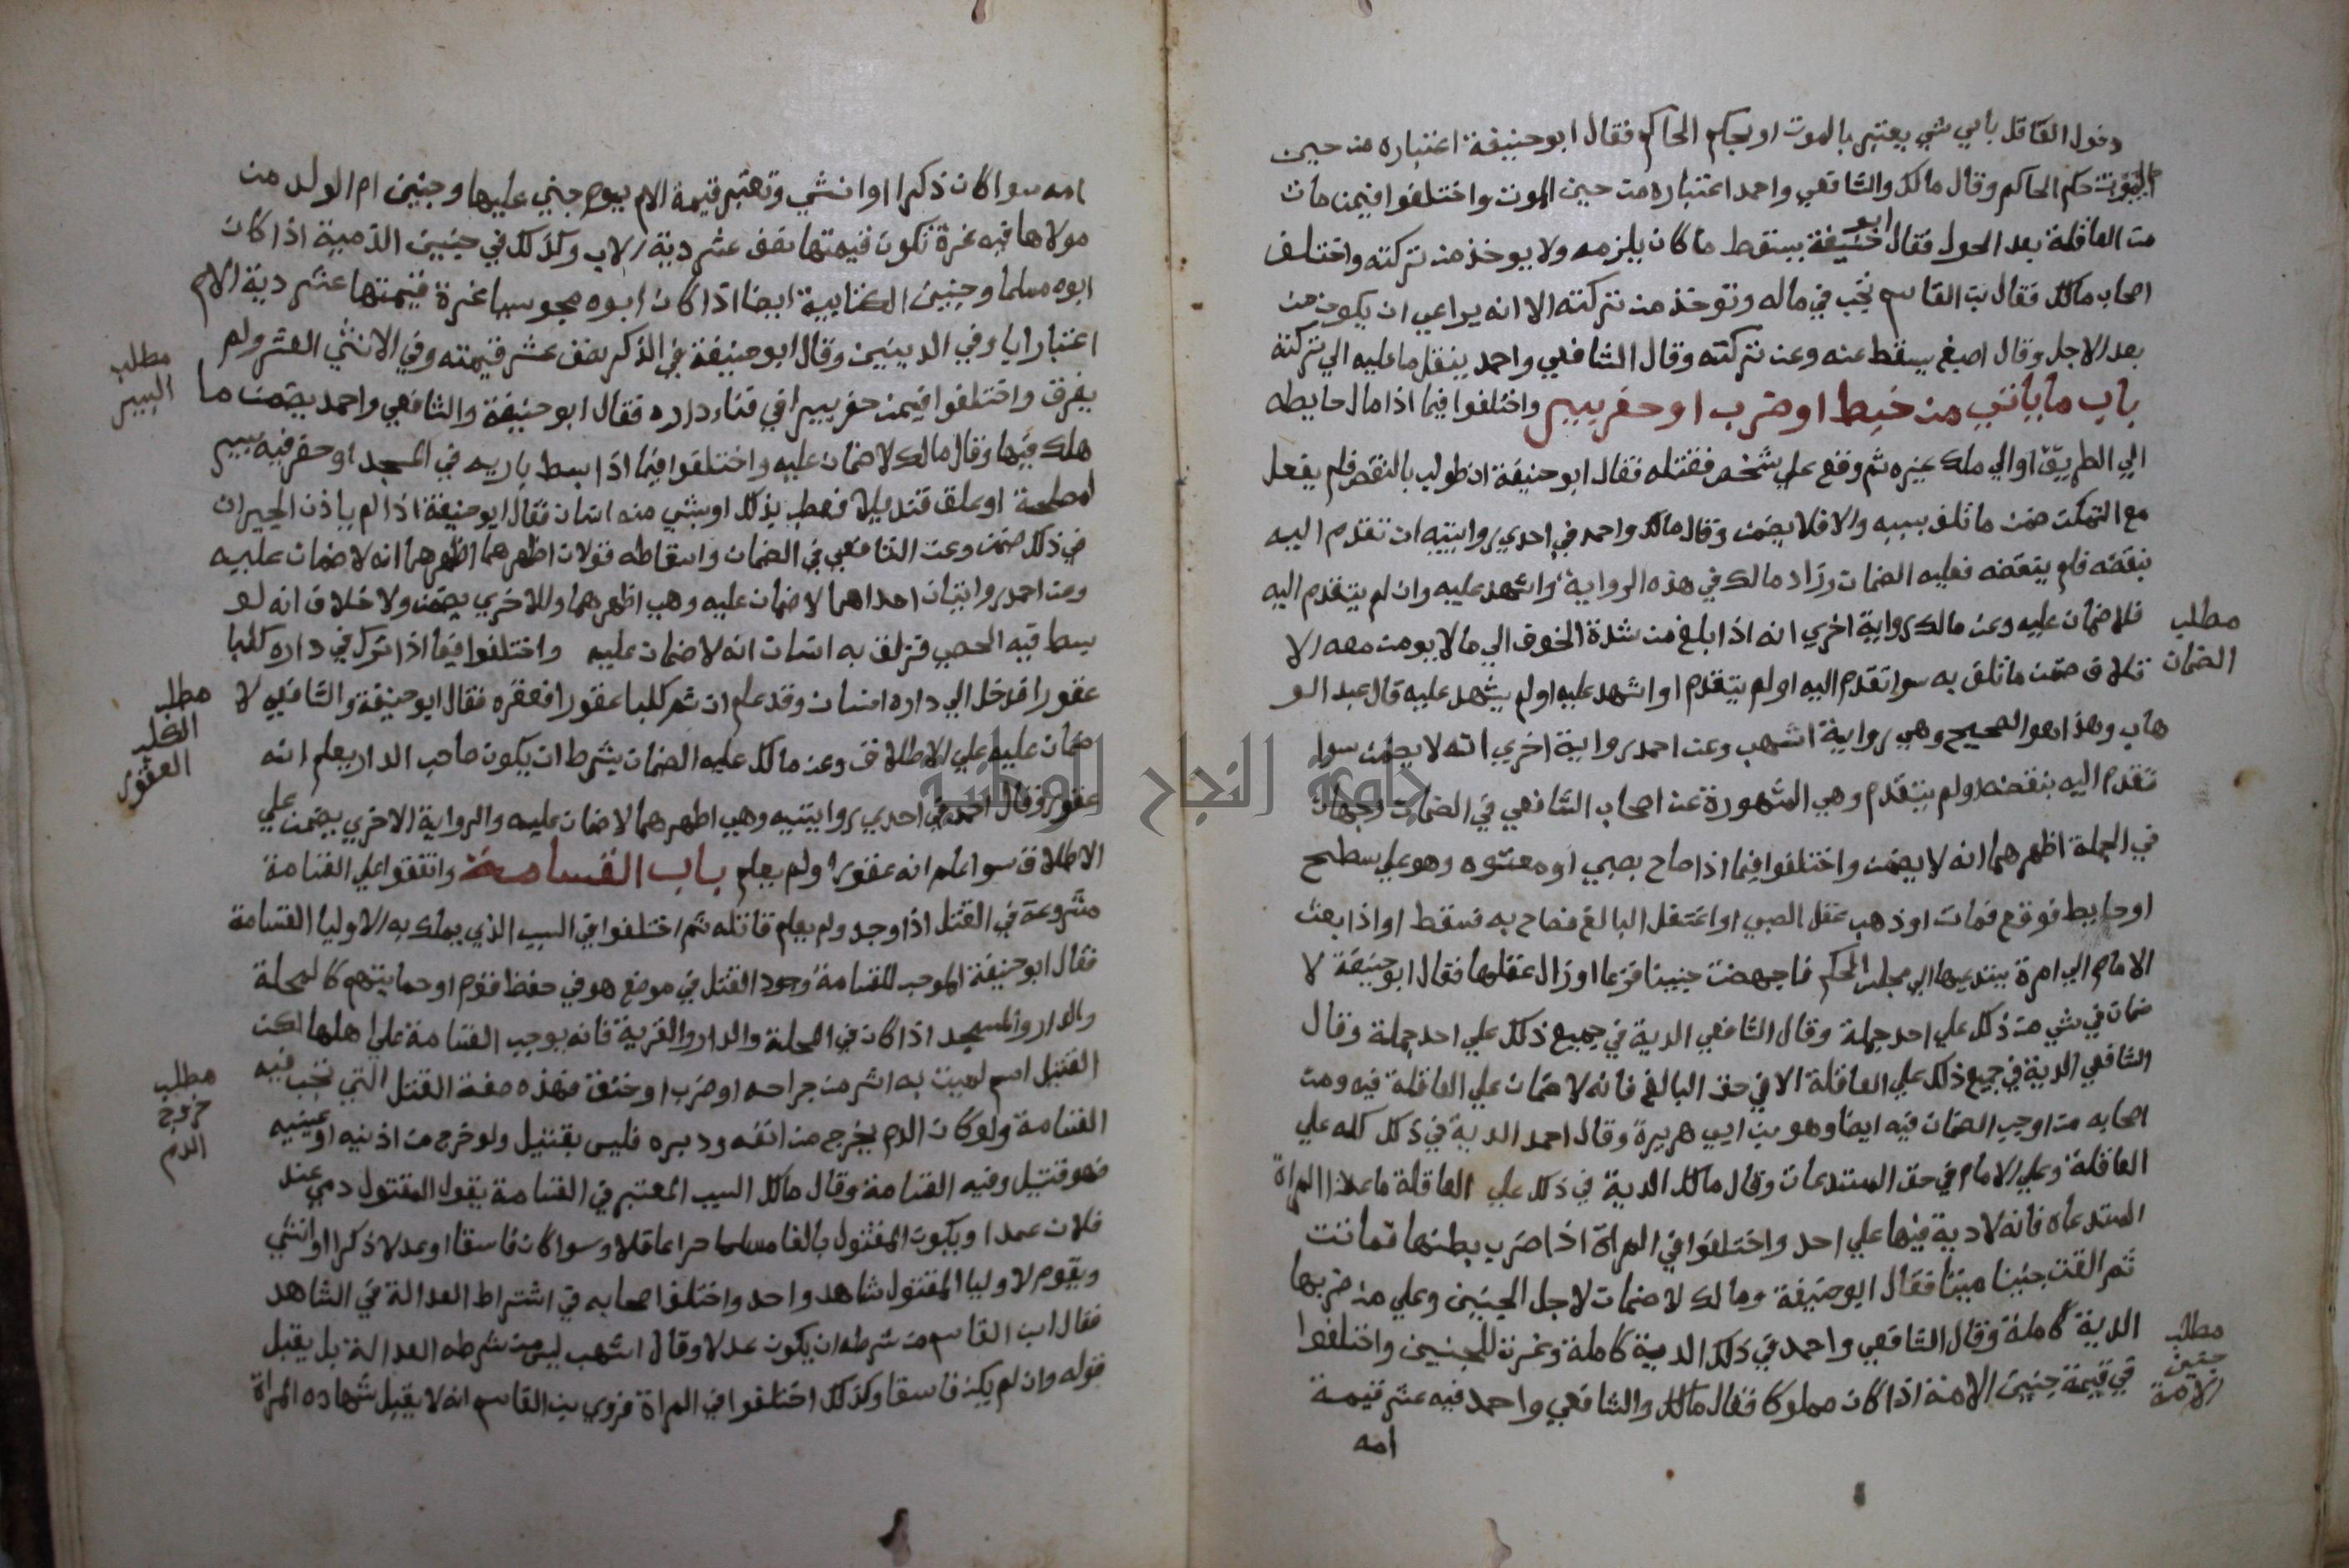 دخول القاتل بأي شي يعتبر بالموت او بحكم الحاكم فقال ابو حنيفة اعتباره من حين
حكم الحاكم وقال مالك والشافعي واحمد اعتباره من حين الموت واختلفوا فيمن مات
من العاقلة بعد الحول فقال ابو حنيفة يسقط ما كان يلزمه ولا يوخذ من تركته واختلف
اصحاب مالك فقال بن القاسم تجب في ماله وتوخذ من تركته الا انه يراعي ان يكون من
بعد الاجل وقال اصبغ يسقط عنه وعن تركته وقال الشافعي واحمد ينقل ما عليه الي تركته
باب ما ياتي من خبط او ضرب او حفر بيير واختلفوا فيما اذا مال حايطه
الي الطريق او الي ملك غيره ثم وقع علي شخص فقتله فقال ابو حنيفة ان طولب بالنقض فلم يفعل
مع التمكن ضمن ما تلف بسببه والا فلا يضمن وقال مالك واحمد في احدي روايتيه ان تقدم اليه
بنقضه فلم ينقضه فعليه الضمان وزاد مالك في هذه الرواية واشهد عليه وان لم يتقدم اليه
فلا ضمان عليه وعن مالك رواية اخري انه اذا بلغ من شدة الخوف الي ما لا يومن معه الا
مطلب
الضمان
تلاف ضمن ما تلف به سوا تقدم اليه او لم يتقدم او اشهد عليه او لم يشهد عليه قال عبد الو
هاب وهذا هو الصحيح وهي رواية اشهب وعن احمد رواية اخري انه لا يضمن سوا
تقدم اليه بنقضه او لم يتقدم وهي المشهورة عن اصحاب الشافعي في الضمان وجهان
في الجملة اظهرهما انه لا يضمن واختلفوا فيما اذا صاح بصبي او معتوه وهو علي سطح
او حايط فوقع فمات او ذهب عقل الصبي او اغتفل البالغ فصاح به فسقط او اذا بعث
الامام الي امرة يستدعيها الي مجلس الحكم فاجهضت جنينا فزعا او زال عقلها فقال ابو حنيفة لا
ضمان في شي من ذلك علي احد جملة وقال الشافعي الدية في جميع ذلك علي احد جملة وقال
الشافعي الدية في جميع ذلك علي العاقلة الا في حق البالغ فانه لا ضمان علي العاقلة فيه ومن
اصحابه من اوجب الضمان فيه ايضا وهو بن ابي هريرة وقال احمد الدية في ذلك كله علي
العاقلة وعلي الامام في حق المستدعات وقال مالك الدية في ذلك علي العاقلة ما عدا المراة
المستدعاه فانه لا دية فيها علي احد واختلفوا في المراة اذا ضرب بطنها فماتت
ثم القت جنينا ميتا فقال ابو حنيفة ومالك لا ضمان لاجل الجنين وعلي من ضربها
الدية كاملة وقال الشافعي واحمد في ذلك الدية كاملة وغرة للجنين واختلفوا
مطلب
جنين
الامة
في قيمة جنين الامة اذا كان مملوكا فقال مالك والشافعي واحمد فيه عشر قيمة
امه
امه سوا كان ذكرا او انثي وتعتبر قيمة الام يوم جني عليها وجنين ام الولد من
مولاها فيه غرة تكون قيمتها نصف عشر دية الاب وكذلك في جنين الذمية اذا كان
ابوه مسلما وجنين الكتابية ايضا اذا كان ابوه مجوسيا غرة قيمتها عشر دية الام
اعتبارا في الدينين وقال ابو حنيفة في الذكر نصف عشر قيمته وفي الانثي العشر ولم
مطلب
البيير
يفرق واختلفوا فيمن حفر بييرا في فناء داره فقال ابو حنيفة والشافعي واحمد يضمن ما
هلك فيها وقال مالك لا ضمان عليه واختلفوا فيما اذا بسط باريه في المسجد او حفر فيه بيير
لمصلحة او علق قنديلا فعطب بذلك او بشي منه انسان فقال ابو حنيفة اذا لم ياذن الجيران
في ذلك ضمن وعن الشافعي في الضمان واسقاطه قولان اظهرهما اظهرهما انه لا ضمان عليه
وعن احمد روايتان احداهما لا ضمان عليه وهي اظهرهما وللاخري يضمن ولا خلاف انه لو
بسط فيه الحصي فزلق به انسان انه لا ضمان عليه واختلفوا فيما اذا ترك في داره كلبا
مطلب
الكلب
العقور
عقورا فدخل الي داره انسان وقد علم ان ثم كلبا عقورا فعقره فقال ابو حنيفة والشافعي لا
ضمان عليه علي الاطلاق وعن مالك عليه الضمان بشرط ان يكون صاحب الدار يعلم انه
عقور وقال احمد في احدي روايتيه وهي اظهرهما لا ضمان عليه والرواية الاخري يضمن علي
الاطلاق سوا علم انه عقورا ولم يعلم باب القسامة واتفقوا علي القسامة
مشروعة في القتل اذا وجد ولم يعلم قاتله ثم اختلفوا في السبب الذي يملك به الاوليا القسامة
فقال ابو حنيفة الموجب للقسامة وجود القتل في موضع هو في حفظ قوم او حمايتهم كالمحلة
والدار والمسجد اذا كان في المحلة والدار والقرية فانه يوجب القسامة علي اهلها لكن
مطلب
خروج
الدم
القتيل اسم لميت به اثر من جراحه او ضرب او خنق فهذه صفة القتل التي تجب فيه
القسامة ولو كان الدم يخرج من انفه ودبره فليس بقتيل ولو خرج من اذنيه او عينيه
فهو قتيل وفيه القسامة وقال مالك السبب المعتبر في القسامة يقول المقتول دمي عند
فلان عمدا ويكون المقتول بالغا مسلما حرا عاقلا وسوا كان فاسقا او عدلا ذكرا او انثي
ويقوم لاوليا المقتول شاهد واحد واختلف اصحابه في اشتراط العدالة في الشاهد
فقال ابن القاسم من شرطه ان يكون عدلا وقال اشهب ليس من شرطه العدالة بل يقبل
قوله وان لم يكن فاسقا وكذلك اختلفوا في المراة فروي بن القاسم انه لا يقبل شهاده المراة
جامعة النجاح الوطنية